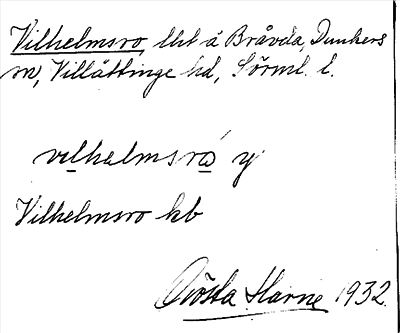 Vilhelmsro, lht å Bråvda, Dunkers
sn, Villåttinge hd, Sörml. l.
vilhelmsrò y
Vilhelmsro kb
Gösta Harne 1932.